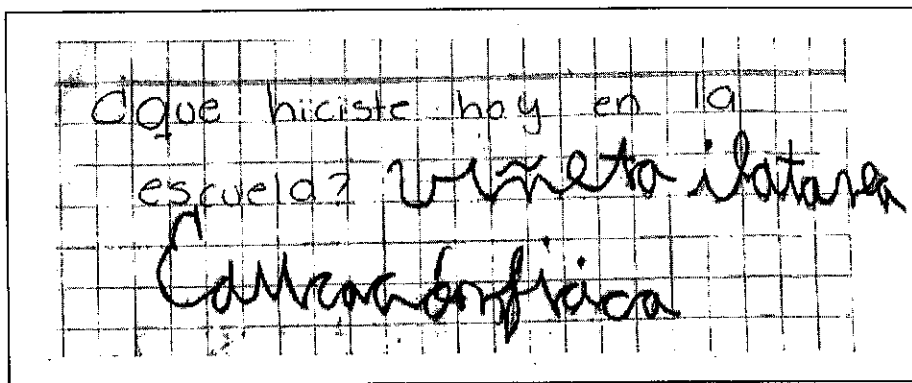 ¿que hiciste hoy en la
escuela? viñeta ilatarea
Educación física